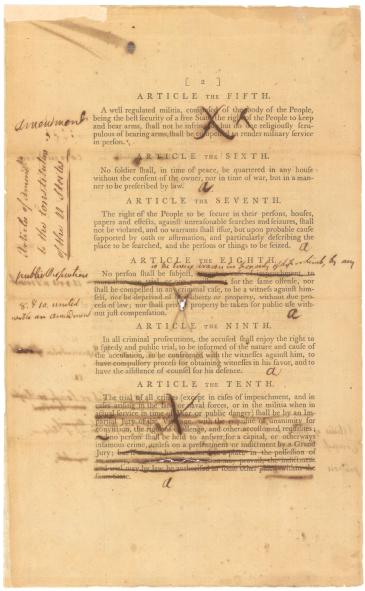 [ 2 ]
ARTICLE THE FIFTH.
A well regulated militia, composed of the body of the People,
being the best security of a free State, the right of the People to keep
and bear arms, shall not be infringed, but no one religiously scru-
pulous of bearing arms, shall be compelled to render military service
in person.
Amendment
ARTICLE THE SIXTH.
No soldier shall, in time of peace, be quartered in any house
without the consent of the owner, nor in time of war, but in a man-
ner to be prescribed by law.
a
Articles of amendt
to the Constitution
of the U States
ARTICLE THE SEVENTH.
The right of the People to be secure in their persons, houses,
papers and effects, against unreasonable searches and seizures, shall
not be violated, and no warrants shall issue, but upon probable cause
supported by oath or affirmation, and particularly describing the
place to be searched, and the persons or things to be seized.
a
ARTICLE THE EIGHTH.
by any
public Prosecutions
No person shall be subject, to
for the same offense, nor
shall be compelled in any criminal case, to be a witness against him-
self, nor be deprived of life, liberty or property, without due pro-
cess of law; nor shall private property be taken for public use with-
out just compensation.
a
ARTICLE THE NINTH.
In all criminal prosecutions, the accused shall enjoy the right to
a speedy and public trial, to be informed of the nature and cause of
the accusation, to be confronted with the witnesses against him, to
have compulsory process for obtaining witnesses in his favor, and to
have the assistance of counsel for his defence.
a
ARTICLE THE TENTH.
The trial of all crimes (except in cases of impeachment, and in
cases arising in the land or naval forces, or in the militia when in
actual service in time of war or public danger) shall be by an Im-
partial Jury of the Vicinage, with the requisite of unanimity for
conviction, the right of challenge, and other accostomed requisites;
no person shall be held to answer for a capital, or otherways
infamous crime, unless on a presentment or indictment by a Grand
Jury; but if a crime be committed in a place in the possession of
an enemy, or in which an insurrection may prevail, the indictment
and trial may by law be authorised in some other place within the
same State.
a